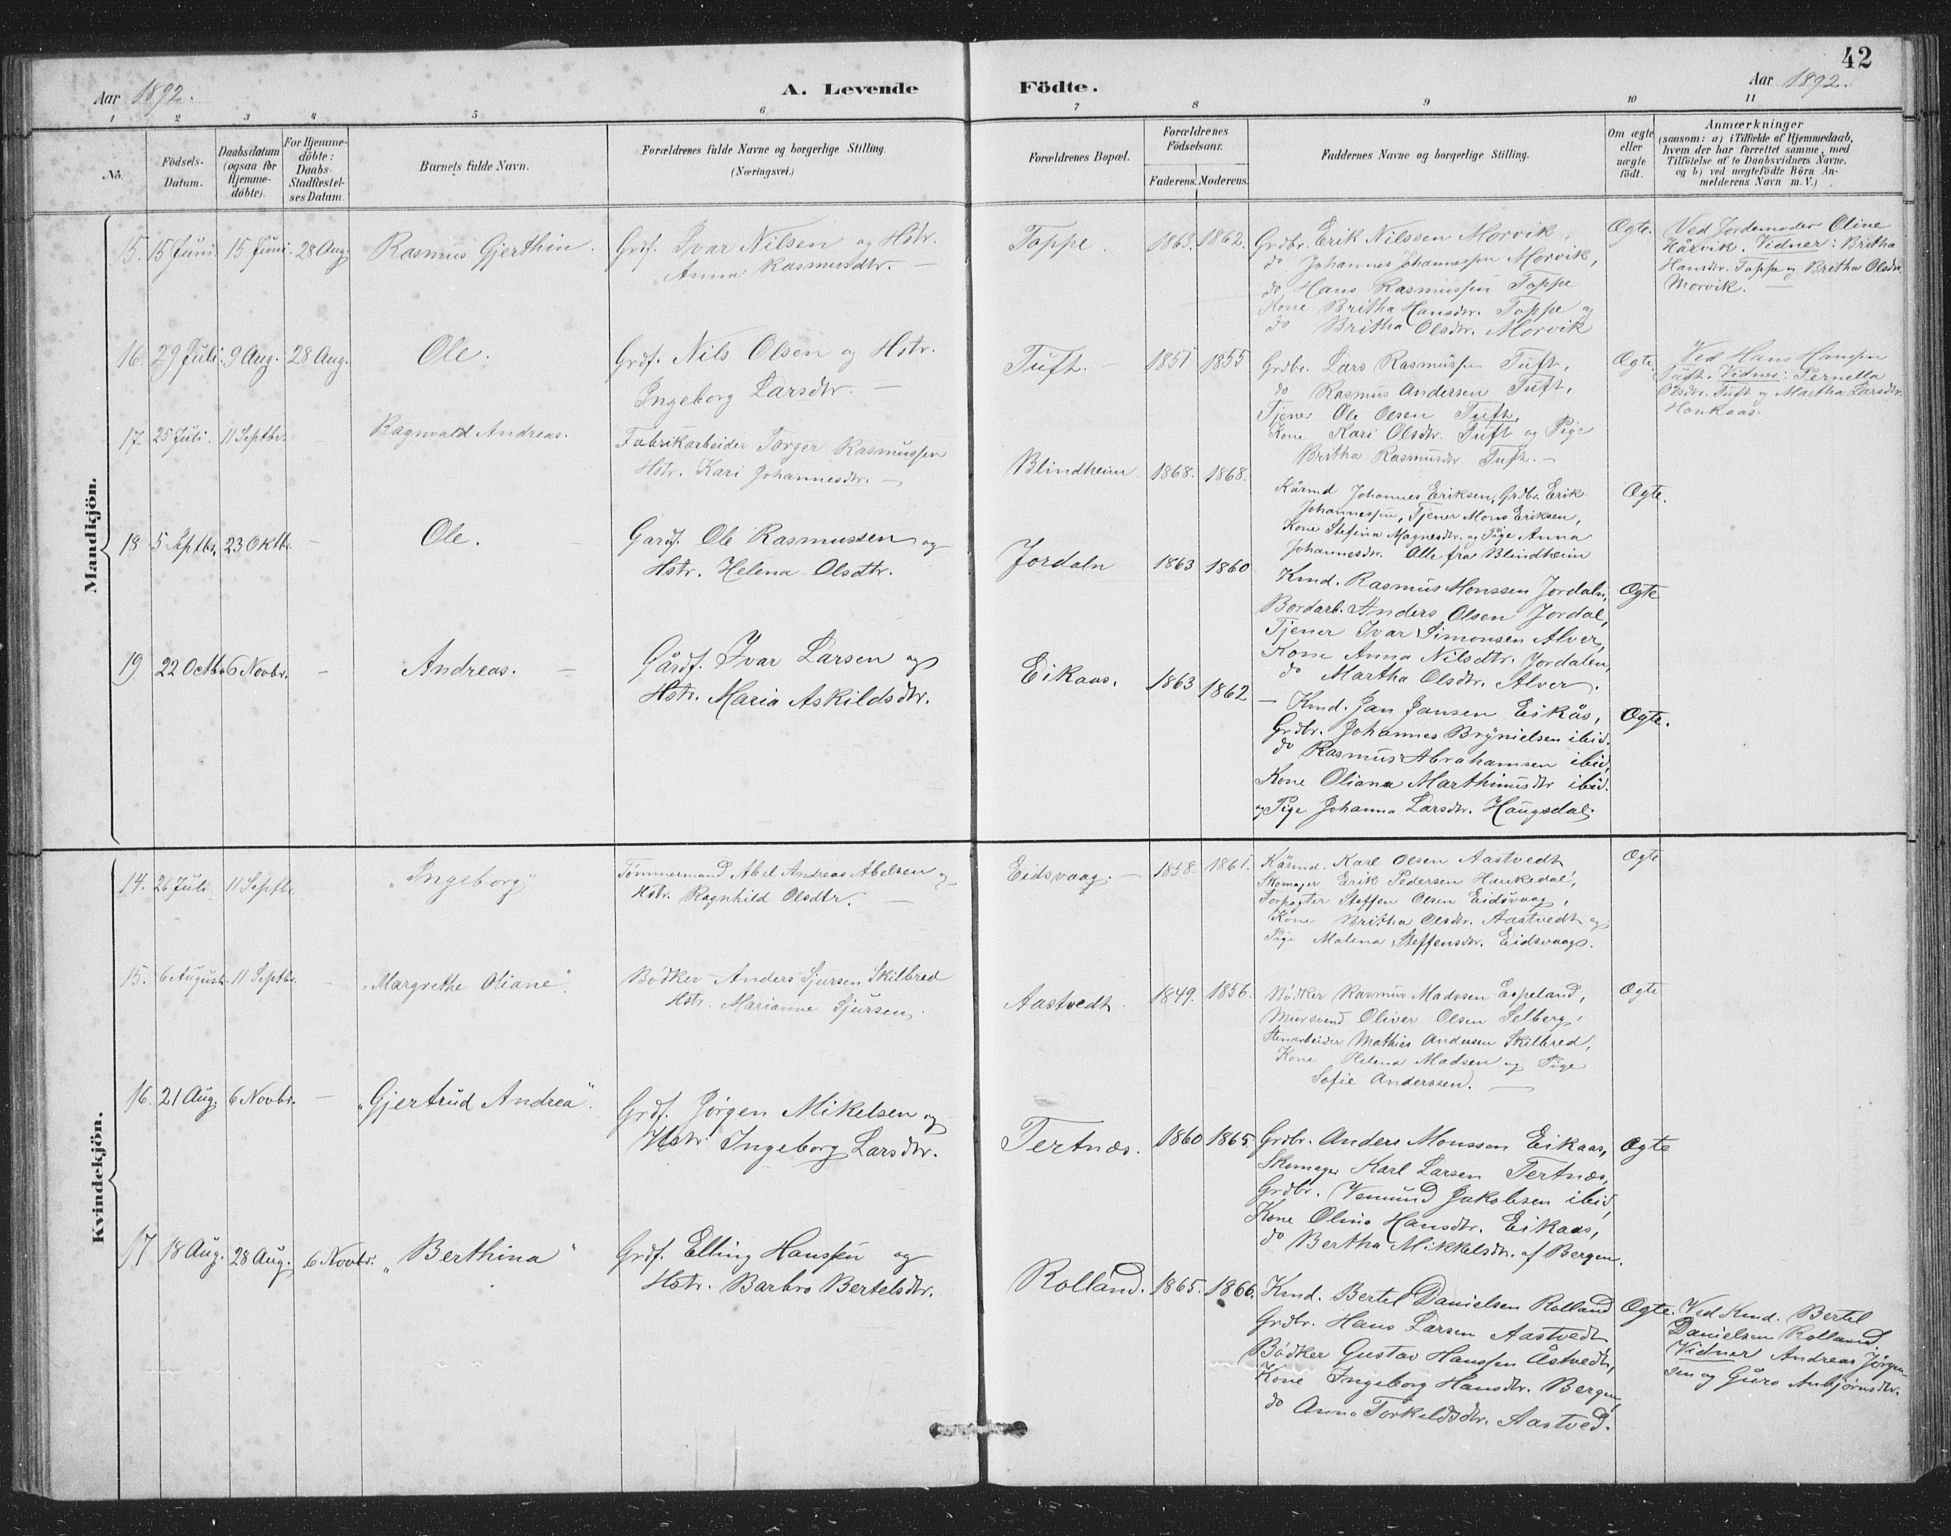 42
Aar 1892. A. Levende Födte. Aar 1892.
1 2 3 4 5 6 7 8 9 10 11
No.
Födsels-
Datum.
Daabsdatum
(ogsaa for
Hjemme-
döbte).
For Hjemme-
döbte:
Daabs-
Stadfæstel-
ses Datum.
Barnets fulde Navn.
Forældrenes fulde Navne og borgerlige Stilling.
(Næringsvei.)
Forældrenes Bopæl.
Forældrenes
Födselsaar.
Faderens. Moderens.
Faddernes Navne og borgerlige Stilling.
Om ægte
eller
uægte
födt.
Anmærkninger
(saasom: a) i Tilfælde af Hjemmedaab,
hvem der har forrettet samme, med
Tilföielse af to Daabsvidners Navne.
og b) ved uægtefödte Börn An-
melderens Navn m. V.)
Mandkjön.
15. 15 Juni. 15 Juni. 28 Aug. Rasmus Gjerthin.
Grdf. Ivar Nilsen og Hstr.
Anna Rasmusdtr. —
Toppe. 1863. 1862.
Grdbr. Erik Nilssen Morvik,
do Johannes Johannessen Morvik,
do Hans Rasmussen Toppe
Kone Britha Hansdtr. Toppe og
do Britha Olsdtr. Morvik
Ægte.
Ved Jordemoder Oline
Hårvik. Vidner: Britha
Hansdtr. Toppe og Britha Olsdtr.
Morvik. —
16. 29 Juli. 9 Aug. 28 Aug. Ole.
Grdf. Nils Olsen og Hstr.
Ingeborg Larsdtr. —
Tuft. — 1851 1855
Grdbr. Lars Rasmussen Tuft,
do Rasmus Andersen Tuft,
Tjener Ole Olsen Tuft,
Kone Kari Olsdtr. Tuft og Pige
Britha Rasmusdtr Tuft. —
Ægte.
Ved Hans Hansen
Tuft. Vidner: Pernella
Olsdtr. Tuft og Martha Larsdtr.
Haukaas.
17 25 Juli. 11 Septbr. — Ragnvald Andreas.
Fabrikarbeider Torger Rasmussen
Hstr. Kari Johannesdtr. —
Blindheim 1868. 1868.
Kårmd Johannes Eriksen, Grdbr. Erik
Johannessen, Tjener Mons Eriksen,
Kone Stefina Magnesdtr. og Pige Anna
Johannesdtr. Alle fra Blindheim
Ægte.
18 5 Septbr. 23 Oktbr. — Ole. —
Gardf. Ole Rasmussen og
Hstr. Helena Olsdtr.
Jordaln 1863 1860
Kmd. Rasmus Monssen Jordaln,
Bordarb. Anders Olsen Jordal,
Tjener Ivar Simonsen Alver,
Kone Anna Nilsdtr. Jordalen,
do Martha Olsdtr. Alver.
Ægte
19 22 Octbr. 6 Novbr. — Andreas. —
Gårdf. Ivar Larsen og
Hstr. Maria Askildsdtr.
Eikaas. 1863 1862
— Kmd. Jan Jansen Eikås,
Grdbr. Johannes Brynielsen ibid.
do Rasmus Abrahamsen ibid,
Kone Oliana Marthinusdtr ibid.
og Pige Johanna Larsdtr. Haugsdal.
Ægte.
Kvindekjön.
14. 26 Juli. 11 Septbr. „Ingeborg"
Tømmermand Abel Andreas Abelsen og
Hstr. Ragnhild Olsdtr. —
Eidsvaag. — 1858. 1861.
Kårmd. Karl Olsen Aastvedt
Skomager Erik Pedersen Hauksdal,
Forpagter Steffen Olsen Eidsvaag,
Kone Britha Olsdtr. Aastvedt og
Pige Malena Steffensdtr. Eidsvaag.
Ægte
15. 6 August. 11 Septbr. — „Margrethe Oliane".
Bødker Anders Sjursen Skilbred
Hstr. Marianne Sjursen.
Aastvedt. 1849. 1856.
Bødker Rasmus Madssen Espeland,
Mursvend Oliver Olsen Selberg,
Stenarbeider Mathias Andersen Skilbred,
Kone Helena Madsen og Pige
Sofie Anderssen. —
Ægte
16. 21 Aug. 6 Novbr. — „Gjertrud Andrea".
Grdf. Jörgen Mikelsen og
Hstr. Ingeborg Larsdtr.
Tertnæs. 1860 1865.
Grdbr. Anders Monssen Eikaas,
Skomager Karl Larsen Tertnæs,
Grdbr. Vemund Jakobsen ibid,
Kone Olina Hansdtr. Eikaas,
do Bertha Mikkelsdtr. af Bergen.
Ægte
17 18 Aug. 28 Aug. 6 Novbr. „Berthina"
Grdf. Elling Hanssen og
Hstr. Barbro Bertelsdtr.
Rolland. 1865. 1866.
Kmd. Bertel Danielsen Rolland
Grdbr. Hans Larsen Aastvedt
Bödker Gustav Hanssen Åstvedt,
Kone Ingeborg Hansdtr. Bergen,
do Anna Torkeldsdtr. Aastved.
Ægte.
Ved Kmd. Bertel
Danielsen Rolland,
Vidner Andreas Jörgen-
sen og Guro Anbjørnsdtr.